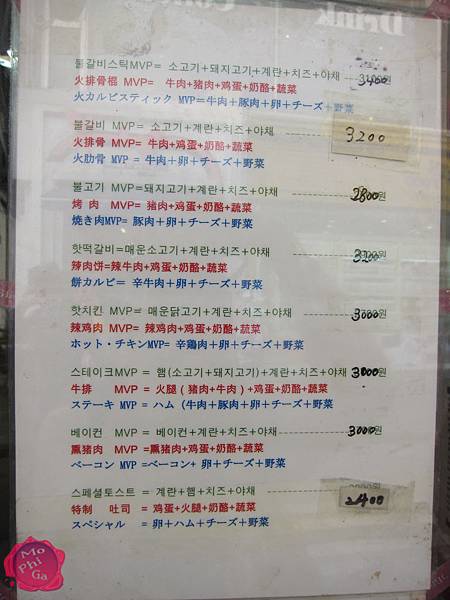 Drink
불갈비스틱MVP= 소고기+돼지고기+계란+치즈+야채 3400원
火排骨棍 MVP= 牛肉+猪肉+鸡蛋+奶酪+蔬菜
火カルビスティック MVP=牛肉+豚肉+卵+チーズ+野菜
불갈비 MVP= 소고기+계란+치즈+야채 3200
火排骨 MVP= 牛肉+鸡蛋+奶酪+蔬菜
火肋骨 MVP= 牛肉+卵+チーズ+野菜
불고기 MVP=돼지고기+계란+치즈+야채 2800원
烤 肉 MVP= 猪肉+鸡蛋+奶酪+蔬菜
焼き肉MVP= 豚肉+卵+チーズ+野菜
핫떡갈비=매운소고기+계란+치즈+야채 3200원
辣肉饼=辣牛肉+鸡蛋+奶酪+蔬菜
餅カルビ= 辛牛肉+卵+チーズ+野菜
핫치킨 MVP= 매운닭고기+계란+치즈+야채 3000원
辣鸡肉 MVP= 辣鸡肉+鸡蛋+奶酪+蔬菜
ホット・チキンMVP= 辛鶏肉+卵+チーズ+野菜
스테이크MVP = 햄(소고기+돼지고기)+계란+치즈+야채 3000원
牛排 MVP = 火腿(猪肉+牛肉)+鸡蛋+奶酪+蔬菜
ステーキ MVP = ハム (牛肉+豚肉+卵+チーズ+野菜
베이컨 MVP = 베이컨+계란+치즈+야채 3000원
薰猪肉 MVP =薰猪肉+鸡蛋+奶酪+蔬菜
ベーコン MVP =ベーコン+ 卵+チーズ+野菜
스페셜토스트 = 계란+햄+치즈+야채 2400
特制 吐司 = 鸡蛋+火腿+奶酪+蔬菜
スペシャル = 卵+ハム+チーズ+野菜
Mo
Phi
Ga